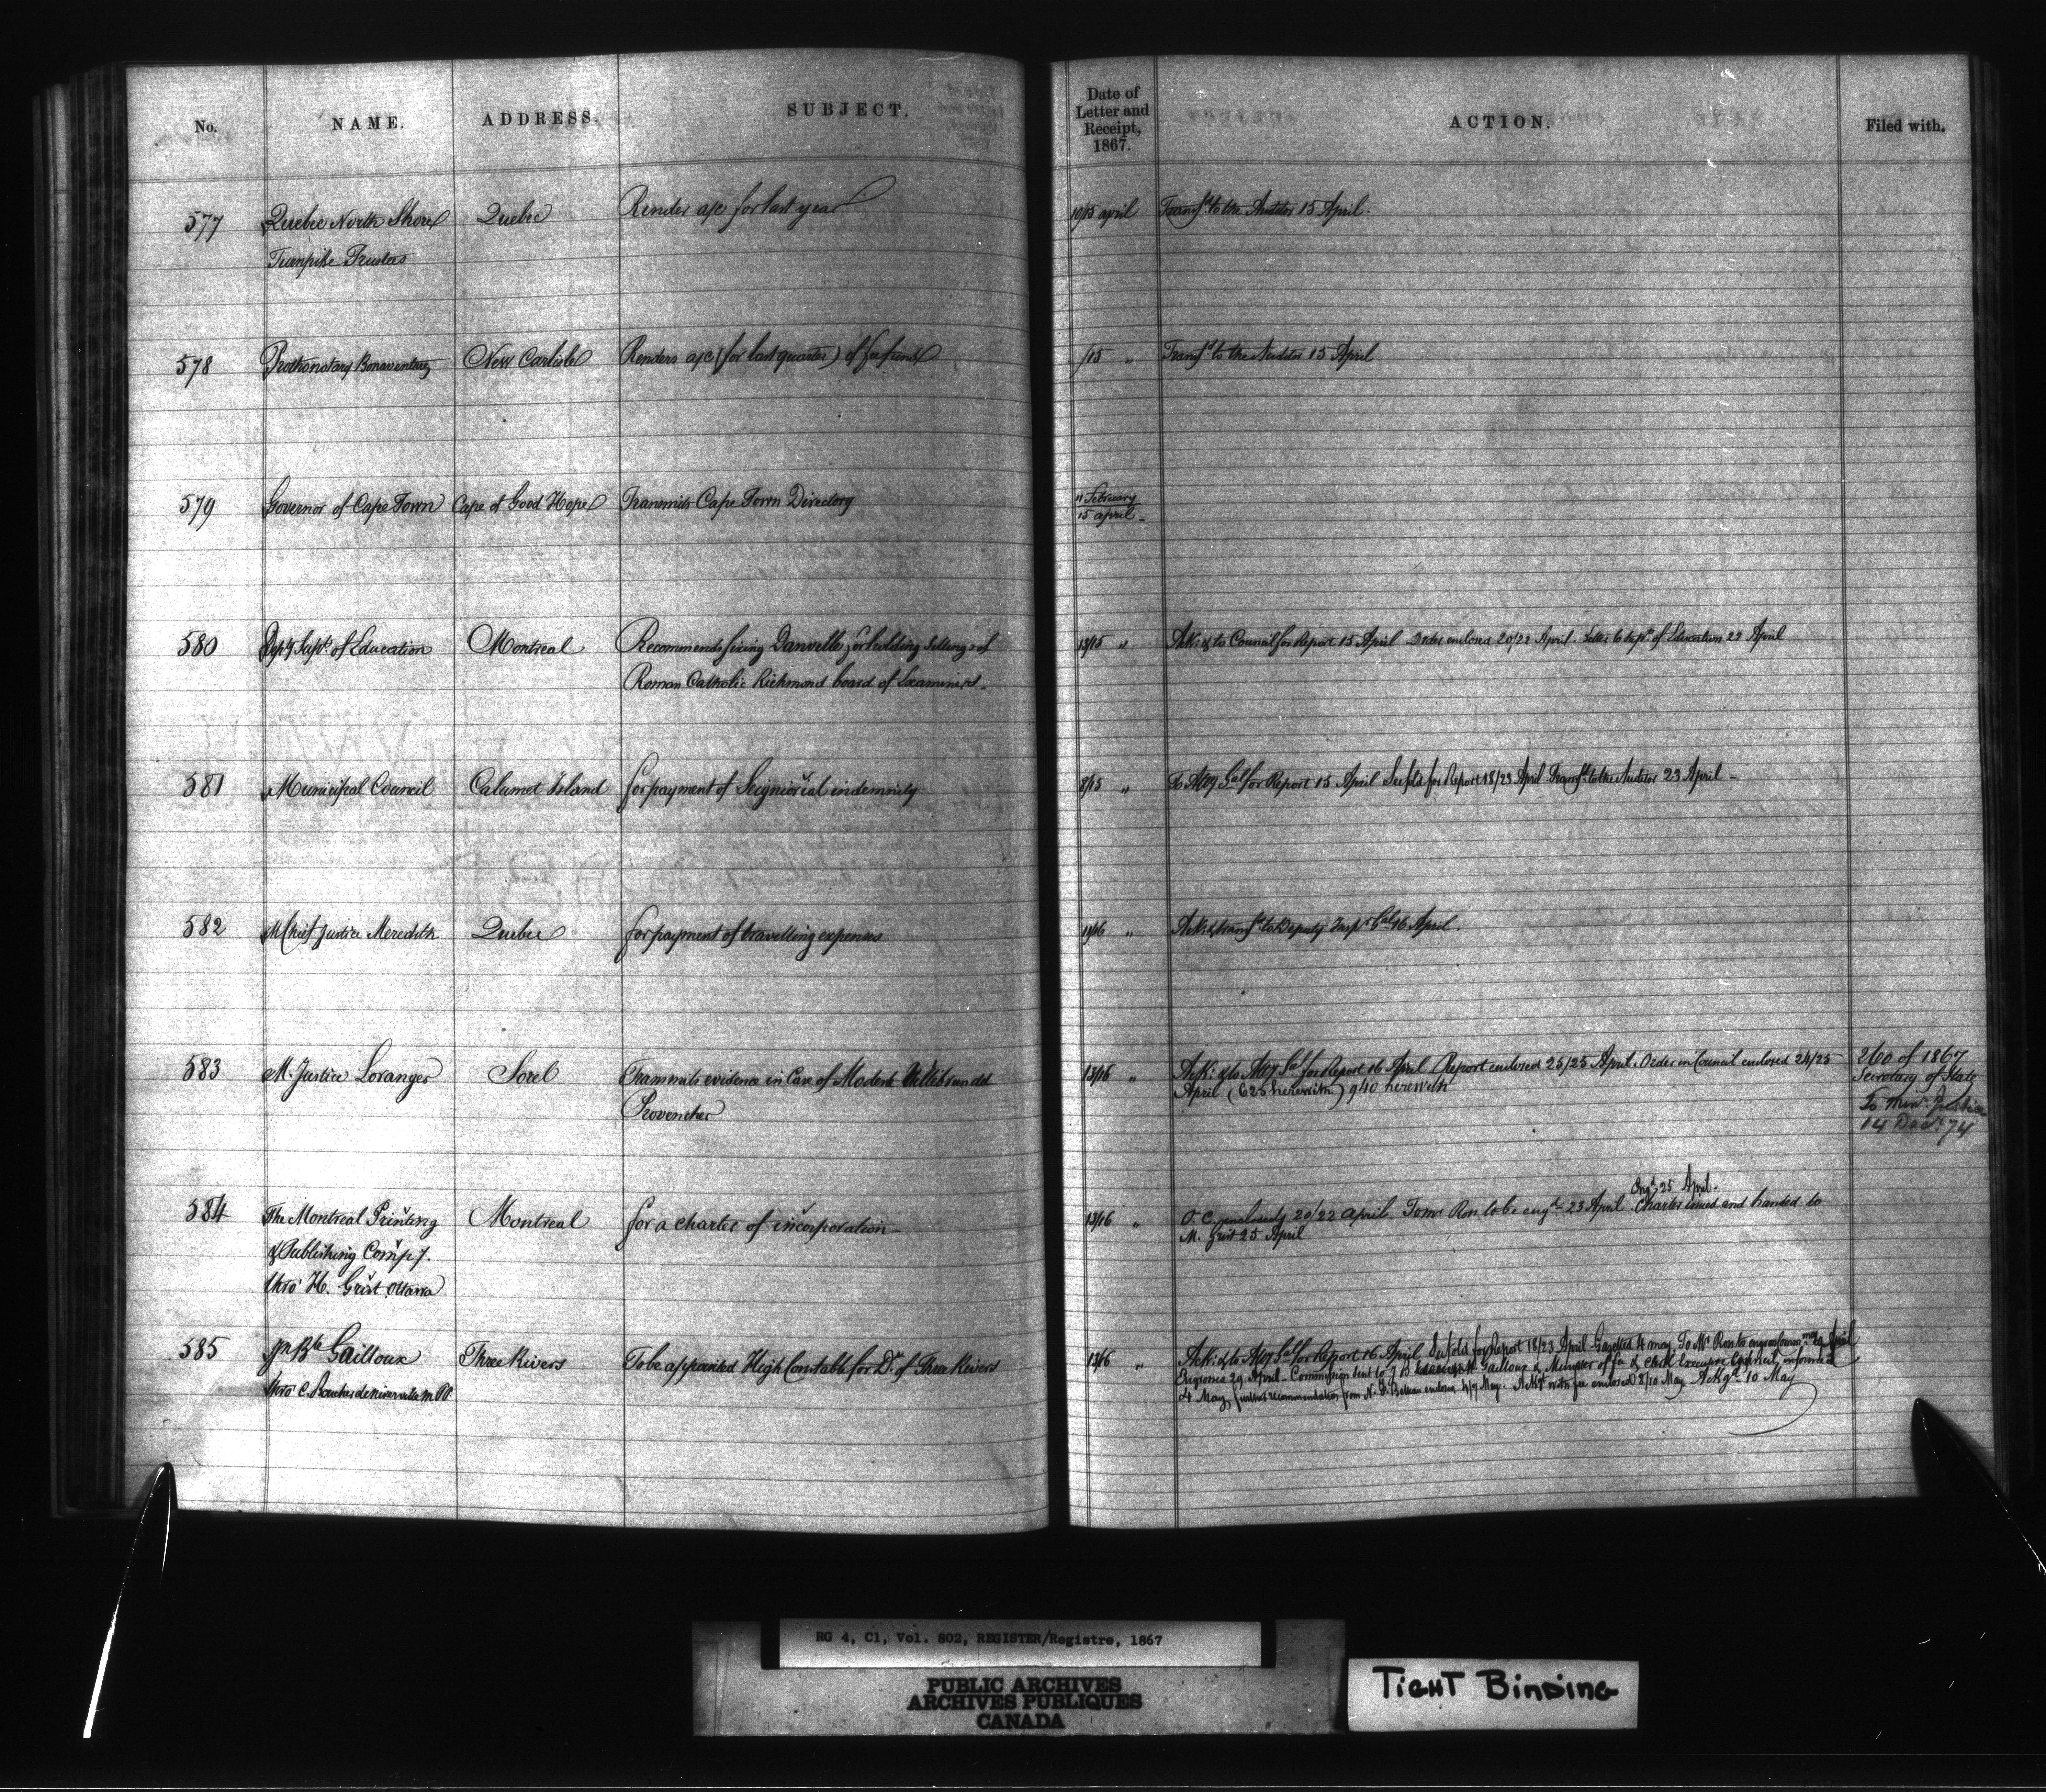 No.
NAME.
ADDRESS.
SUBJECT.
Date of
Letter and
Receipt,
1867.
ACTION.
Filed with.
577 Quebec North Shore Quebec Render a/c for last year 10/15 april Transfd to the Auditor 15 April.
Turnpike Trustees
578 Prothonotary Bonaventure New Carlisle Renders a/c (for last quarter) of fee fund /15 " Transfd to the Auditor 15 April
579 Governor of Cape Town Cape of Good Hope Transmits Cape Town Directory 11 February
15 april
580 Depy Supt. of Education Montreal Recommends fixing Danville for holding sittings of 13/15 " Ack: & to Council for Report 15 April Order enclosed 20/22 April. Letter to Supt of Education 22 April
Roman Catholic Richmond board of Examiners.
581 Municipal Council Calumet Island for payment of Seigniorial indemnity 8/15 " To Atty Genl for Report 15 April See fold for Report 18/23 April Transfd to the Auditor 23 April
582 M Chief Justice Meredith Quebec for payment of travelling expenses 11/16 " Ack: & transfd to Deputy Inspr Gal 16 April.
583 M. Justice Loranger Sorel Transmits evidence in Case of Modeste Villebrun dit 13/16 " Ack: & to Atty Gal for Report 16 April Report enclosed 25/25 April. Order in Council enclosed 24/25 260 of 1867
Provencher April (625 herewith) 940 herewith Secretary of State
To Minr. Justice
14 Decr. 74
584 The Montreal Printing Montreal for a charter of incorporation 13/16 " O. C. enclosed 20/22 april To Mr Ross to be engd 23 April Engd 25 April. Charter issued and handed to
& Publishing Compy. M. Grist 25 April
thro' H. Grist Ottawa
585 Jn Bte Gailloux Three Rivers To be appointed High Constable for Dt of Three Rivers 13/16 " Ack: & to Atty Gal for Report 16 April See fold for Report 18/23 April Gazetted 4 may To Mr Ross to engross 29 April
thro C. Boucher de Niverville M.P.P. Engrossed 29 April - Commission sent to J B Gailloux & Minister of fa & clerk Executive Council, informed
4 May, further recommendation from N. F. Belleau enclosg 4/7 May. Ackt with fee enclosed 8/10 May Ackgd 10 May
RG 4, C1, Vol. 802, REGISTER/Registre, 1867
PUBLIC ARCHIVES
ARCHIVES PUBLIQUES
CANADA
TIGHT BINDING